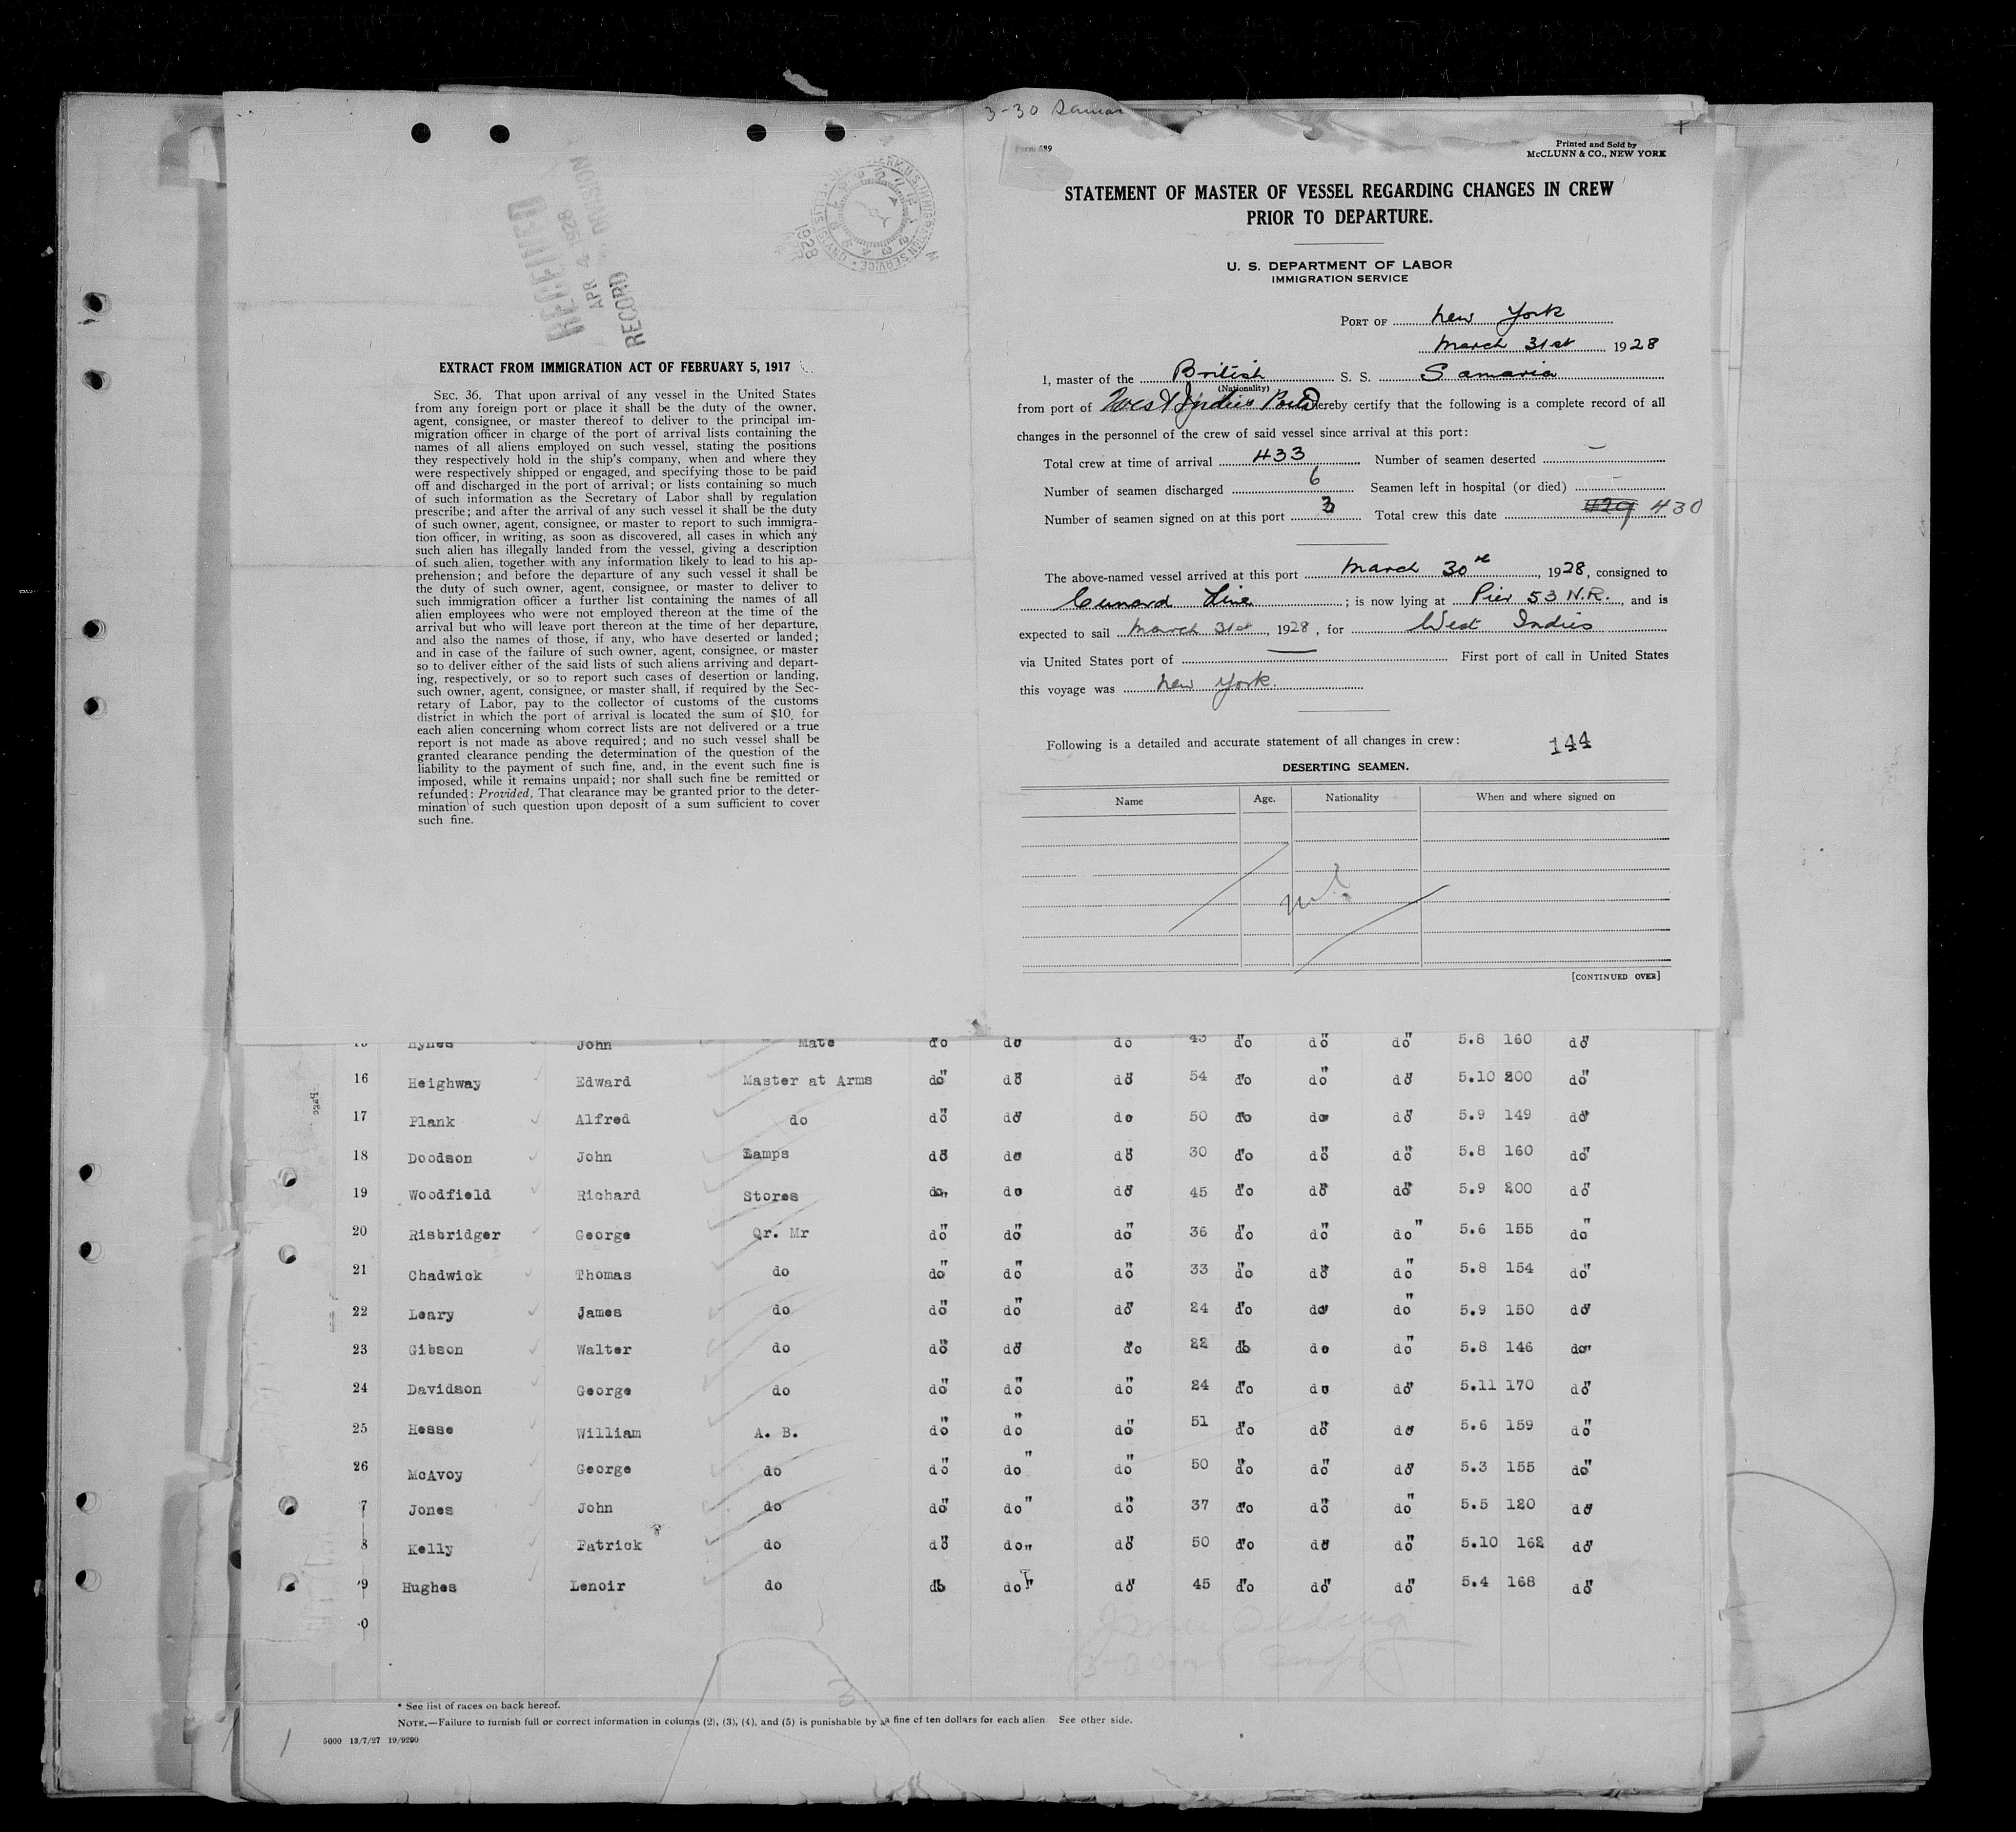 3-30 Samar
RECEIVED
APR 4 1928
RECORD DIVISION
1928
EXTRACT FROM IMMIGRATION ACT OF FEBRUARY 5, 1917
SEC. 36. That upon arrival of any vessel in the United States
from any foreign port or place it shall be the duty of the owner,
agent, consignee, or master thereof to deliver to the principal im-
migration officer in charge of the port of arrival lists containing the
names of all aliens employed on such vessel, stating the positions
they respectively hold in the ship's company, when and where they
were respectively shipped or engaged, and specifying those to be paid
off and discharged in the port of arrival; or lists containing so much
of such information as the Secretary of Labor shall by regulation
prescribe; and after the arrival of any such vessel it shall be the duty
of such owner, agent, consignee, or master to report to such immigra-
tion officer, in writing, as soon as discovered, all cases in which any
such alien has illegally landed from the vessel, giving a description
of such alien, together with any information likely to lead to his ap-
prehension; and before the departure of any such vessel it shall be
the duty of such owner, agent, consignee, or master to deliver to
such immigration officer a further list containing the names of all
alien employees who were not employed thereon at the time of the
arrival but who will leave port thereon at the time of her departure,
and also the names of those, if any, who have deserted or landed;
and in case of the failure of such owner, agent, consignee, or master
so to deliver either of the said lists of such aliens arriving and depart-
ing, respectively, or so to report such cases of desertion or landing,
such owner, agent, consignee, or master shall, if required by the Sec-
retary of Labor, pay to the collector of customs of the customs
district in which the port of arrival is located the sum of $10 for
each alien concerning whom correct lists are not delivered or a true
report is not made as above required; and no such vessel shall be
granted clearance pending the determination of the question of the
liability to the payment of such fine, and, in the event such fine is
imposed, while it remains unpaid; nor shall such fine be remitted or
refunded: Provided, That clearance may be granted prior to the deter-
mination of such question upon deposit of a sum sufficient to cover
such fine.
Form 689
Printed and Sold by
McCLUNN & CO., NEW YORK
STATEMENT OF MASTER OF VESSEL REGARDING CHANGES IN CREW
PRIOR TO DEPARTURE.
U. S. DEPARTMENT OF LABOR
IMMIGRATION SERVICE
PORT OF New York
March 31st 1928
I, master of the British S. S. Samaria
(Nationality)
from port of West Indies Ports hereby certify that the following is a complete record of all
changes in the personnel of the crew of said vessel since arrival at this port:
Total crew at time of arrival 433 Number of seamen deserted —
Number of seamen discharged 6 Seamen left in hospital (or died) —
Number of seamen signed on at this port 3 Total crew this date 429 430
The above-named vessel arrived at this port March 30th, 1928, consigned to
Cunard Line; is now lying at Pier 53 N.R., and is
expected to sail March 31st, 1928, for West Indies
via United States port of — First port of call in United States
this voyage was New York.
Following is a detailed and accurate statement of all changes in crew: 144
DESERTING SEAMEN.
Name Age. Nationality When and where signed on
nil
[CONTINUED OVER]
Hynes John Mate do" do do 43 do" do" do" 5.8 160 do"
16 Heighway Edward Master at Arms do" do" do" 54 do" do" do" 5.10 200 do"
17 Plank Alfred do do" do" do 50 do" do" do" 5.9 149 do"
18 Doodson John Lamps do" do" do" 30 do" do" do" 5.8 160 do"
19 Woodfield Richard Stores do" do" do" 45 do" do" do" 5.9 200 do"
20 Risbridger George Qr. Mr do" do" do" 36 do" do" do" 5.6 155 do"
21 Chadwick Thomas do do" do" do" 33 do" do" do" 5.8 154 do"
22 Leary James do do" do" do" 24 do" do" do" 5.9 150 do"
23 Gibson Walter do do" do" do" 22 do" do" do" 5.8 146 do"
24 Davidson George do do" do" do" 24 do" do" do" 5.11 170 do"
25 Hesse William A. B. do" do" do" 51 do" do" do" 5.6 159 do"
26 McAvoy George do do" do" do" 50 do" do" do" 5.3 155 do"
7 Jones John do do" do" do" 37 do" do" do" 5.5 120 do"
8 Kelly Patrick do do" do" do" 50 do" do" do" 5.10 162 do"
9 Hughes Lenoir do do" do" do" 45 do" do" do" 5.4 168 do"
0
* See list of races on back hereof.
NOTE.—Failure to furnish full or correct information in columns (2), (3), (4), and (5) is punishable by a fine of ten dollars for each alien. See other side.
5000 13/7/27 19/9290